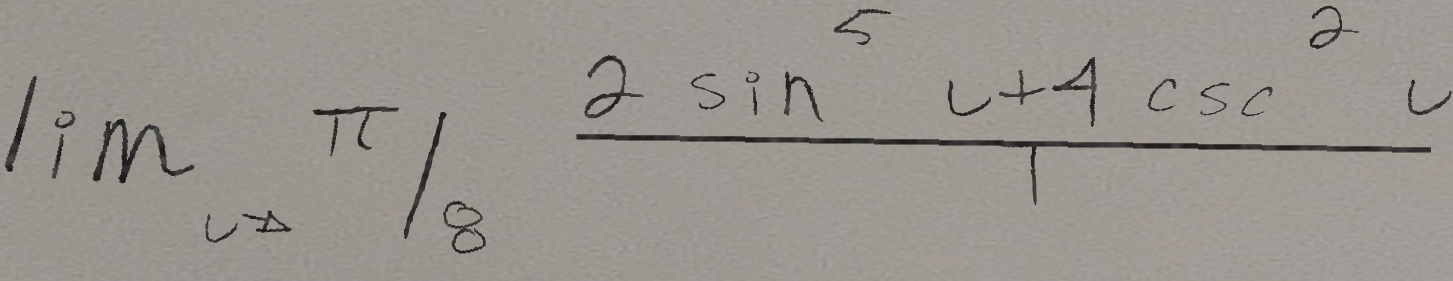 lim_{u→π/8} \frac{2 sin^5 u+4 csc^2 u}{1}